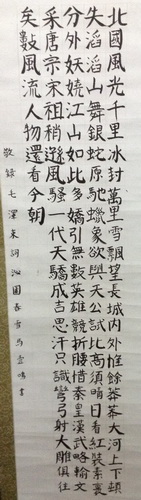 北國風光千里冰封萬里雪飄望長城內外惟餘莽莽大河上下頓
失滔滔山舞銀蛇原馳蠟象欲與天公試比高須晴日看紅裝素裹
分外妖嬈江山如此多嬌引無數英雄競折腰惜秦皇漢武略輸文
采唐宗宋祖稍遜風騷一代天驕成吉思汗只識彎弓射大雕俱往
矣數風流人物還看今朝
敬録毛澤東詞沁園春雪馬雲鳴書